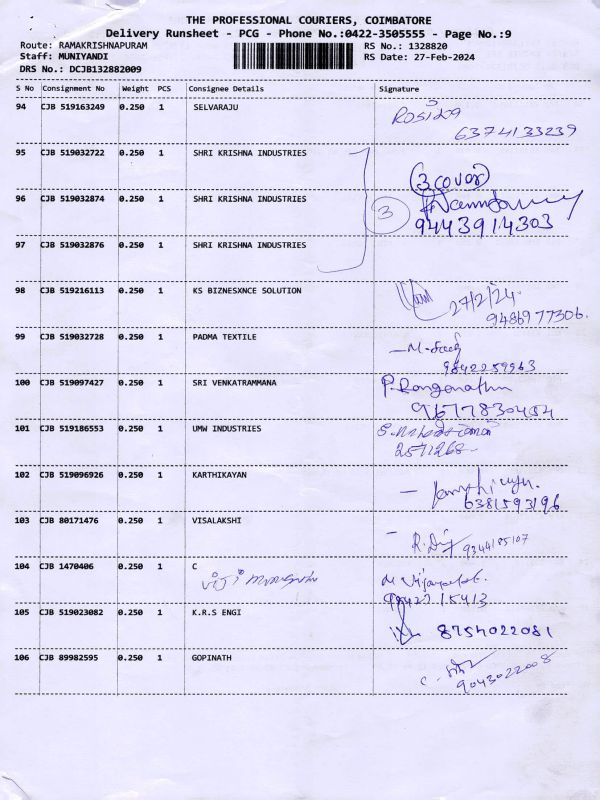 THE PROFESSIONAL COURIERS, COIMBATORE
Delivery Runsheet - PCG - Phone No.:0422-3505555 - Page No.:9
Route: RAMAKRISHNAPURAM RS No.: 1328820
Staff: MUNIYANDI RS Date: 27-Feb-2024
DRS No.: DCJB132882009
S No Consignment No Weight PCS Consignee Details Signature
94 CJB 519163249 0.250 1 SELVARAJU
6374133239
95 CJB 519032722 0.250 1 SHRI KRISHNA INDUSTRIES
(3 cover)
96 CJB 519032874 0.250 1 SHRI KRISHNA INDUSTRIES 3
9443914303
97 CJB 519032876 0.250 1 SHRI KRISHNA INDUSTRIES
98 CJB 519216113 0.250 1 KS BIZNESXNCE SOLUTION
27/2/24
9486977306.
99 CJB 519032728 0.250 1 PADMA TEXTILE
9842259963
100 CJB 519097427 0.250 1 SRI VENKATRAMMANA
9677830454
101 CJB 519186553 0.250 1 UMW INDUSTRIES
2571268
102 CJB 519096926 0.250 1 KARTHIKAYAN
6381593196
103 CJB 80171476 0.250 1 VISALAKSHI
9344185107
104 CJB 1470406 0.250 1 C
9842715413
105 CJB 519023082 0.250 1 K.R.S ENGI
8754022081
106 CJB 89982595 0.250 1 GOPINATH
9043022008